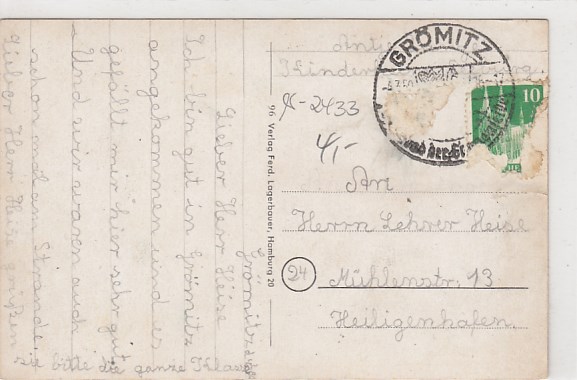 Grömitz
Lieber Herr Heise
Ich bin gut in Grömitz
angekommen und es
gefällt mir hier sehr gut
Und wir waren auch
schon mal am Strande.
Lieber Herr Heise grüßen
Sie bitte die ganze Klasse
96 Verlag Ferd. Lagerbauer, Hamburg 20
Kinden
GRÖMITZ
10
9x-2433
4,-
An
Herrn Lehrer Heise
24
Mühlenstr. 13
Heiligenhafen.